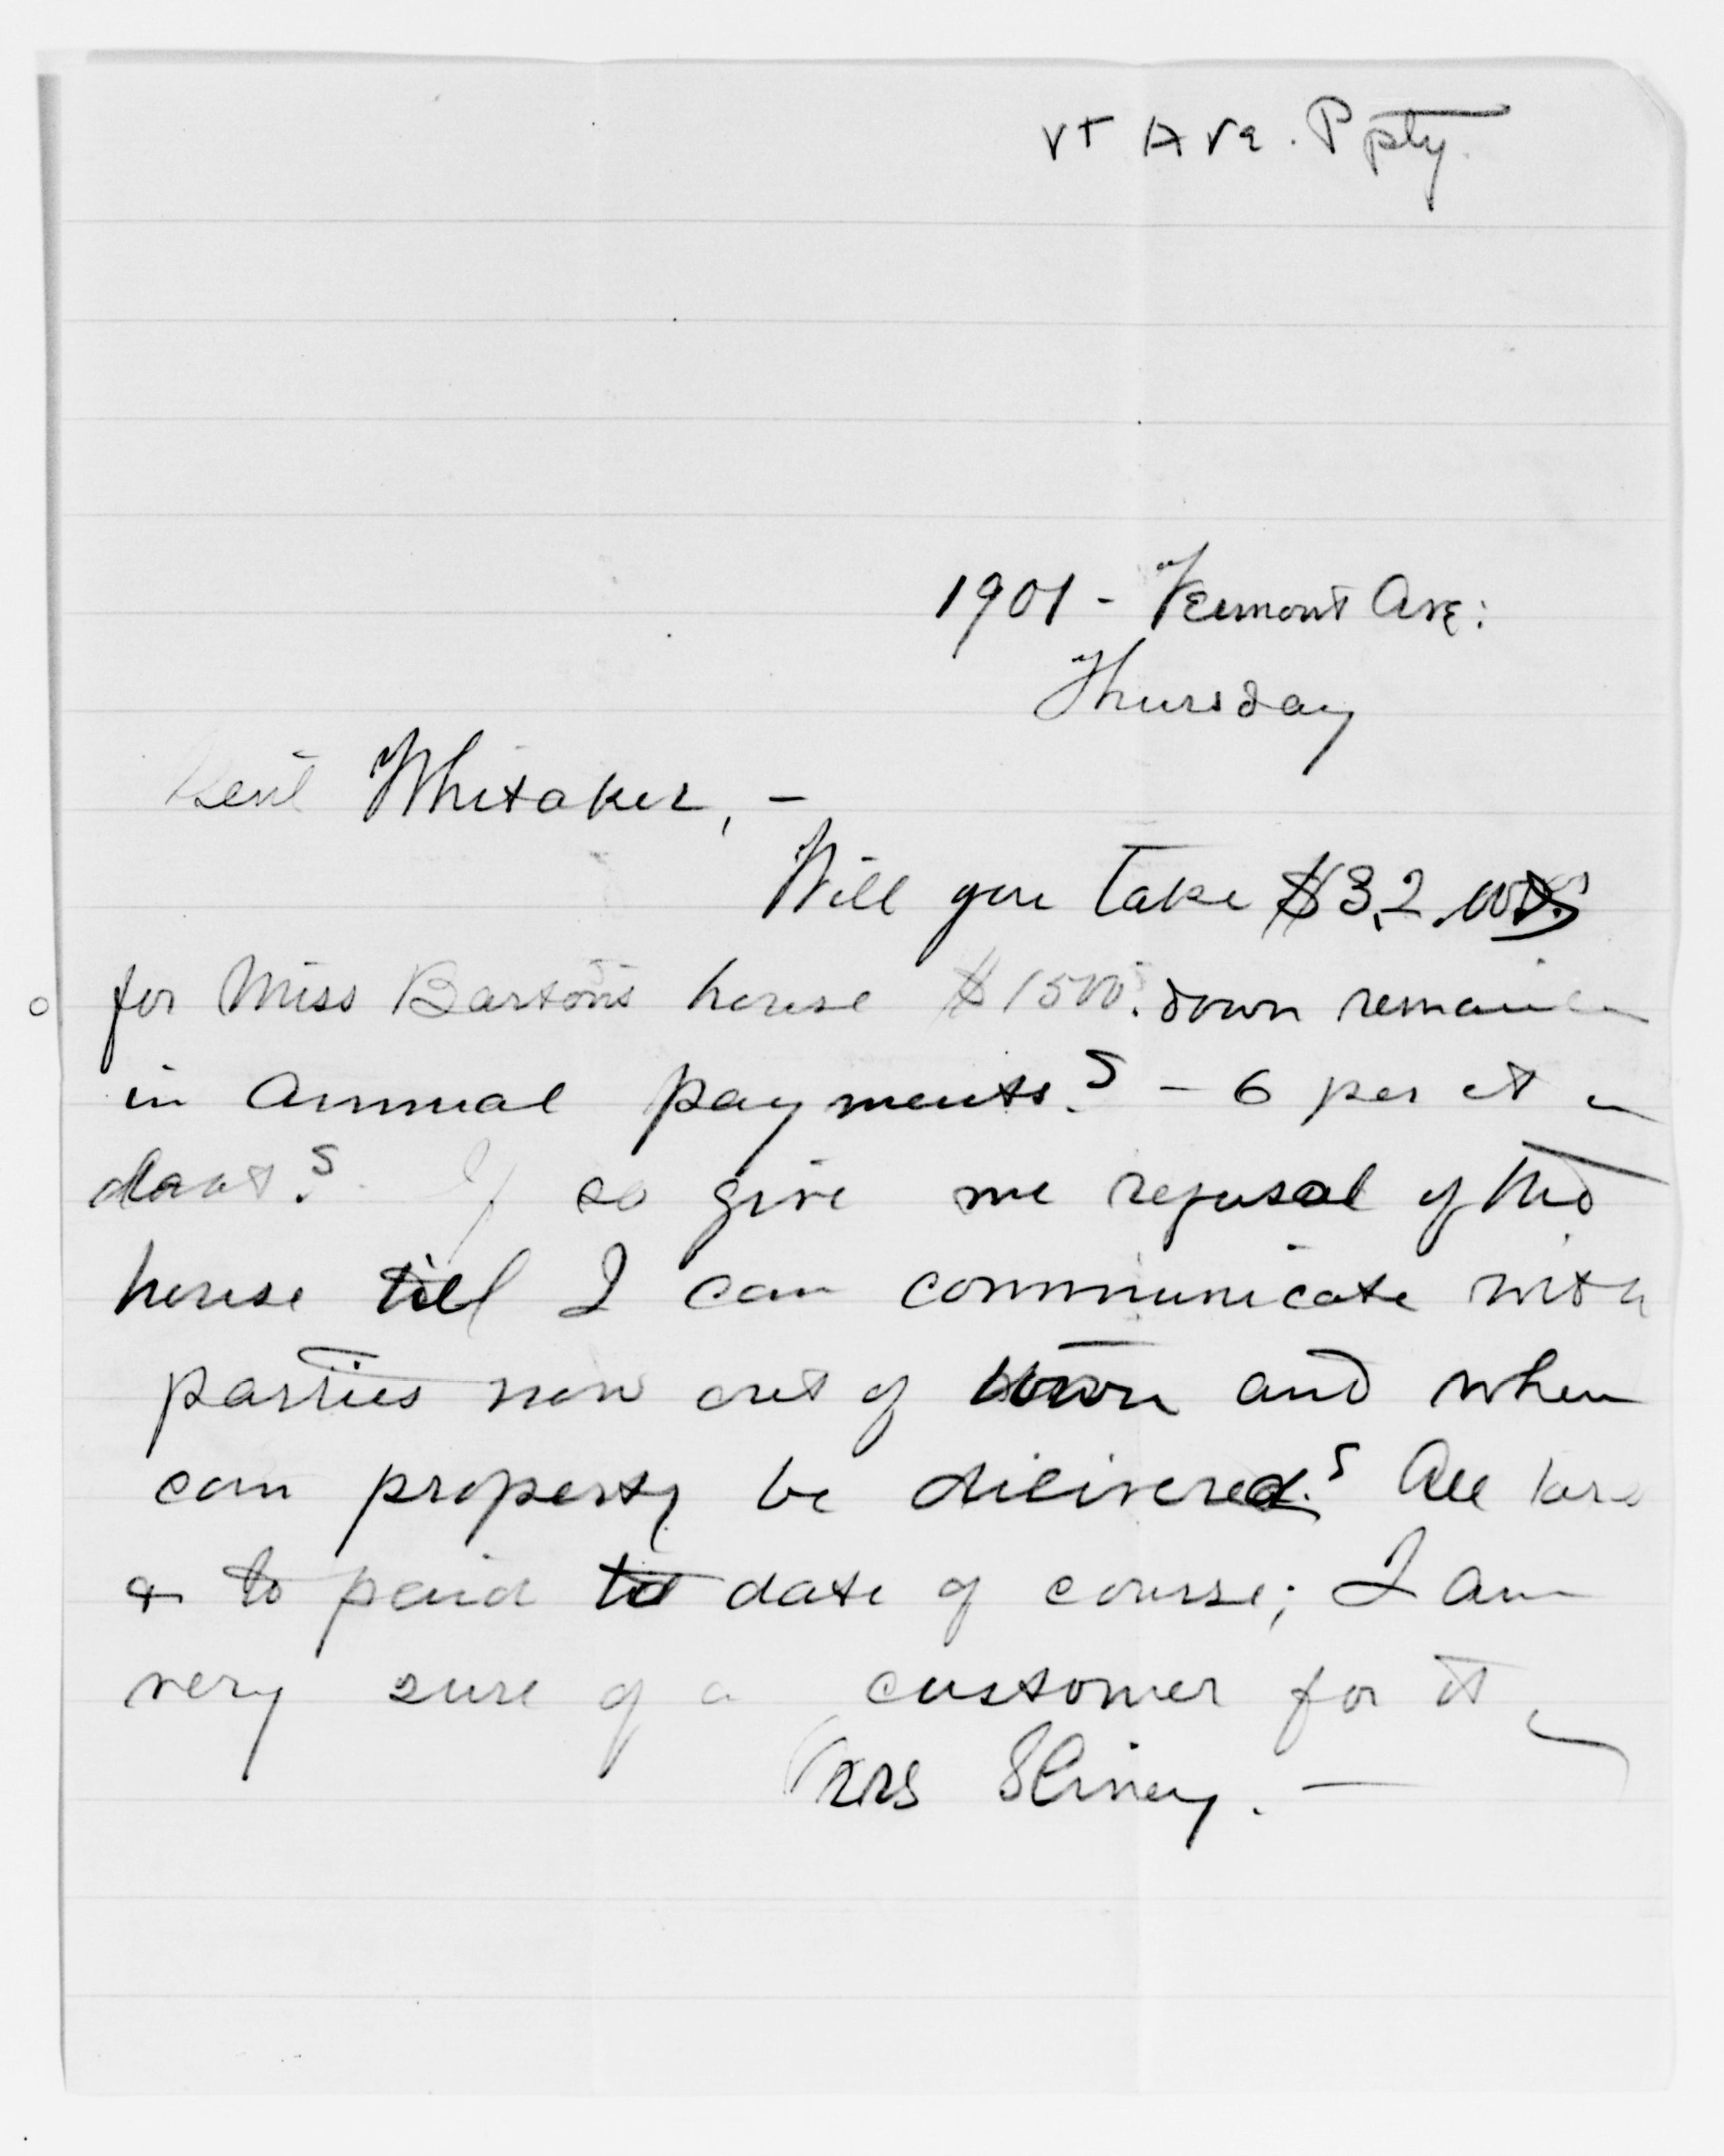 Vt Ave. Ppty.
1901 - Vermont Ave:
Thursday
Genl Whitaker, -
Will you take $3,200
for Miss Barton's house $1500. down remain
in annual payments? - 6 per ct
so give me refusal of this
house till I can communicate with
parties now out of town and when
can property be delivered? All
& to paid to date of course; I am
very sure of a customer for it
Mrs